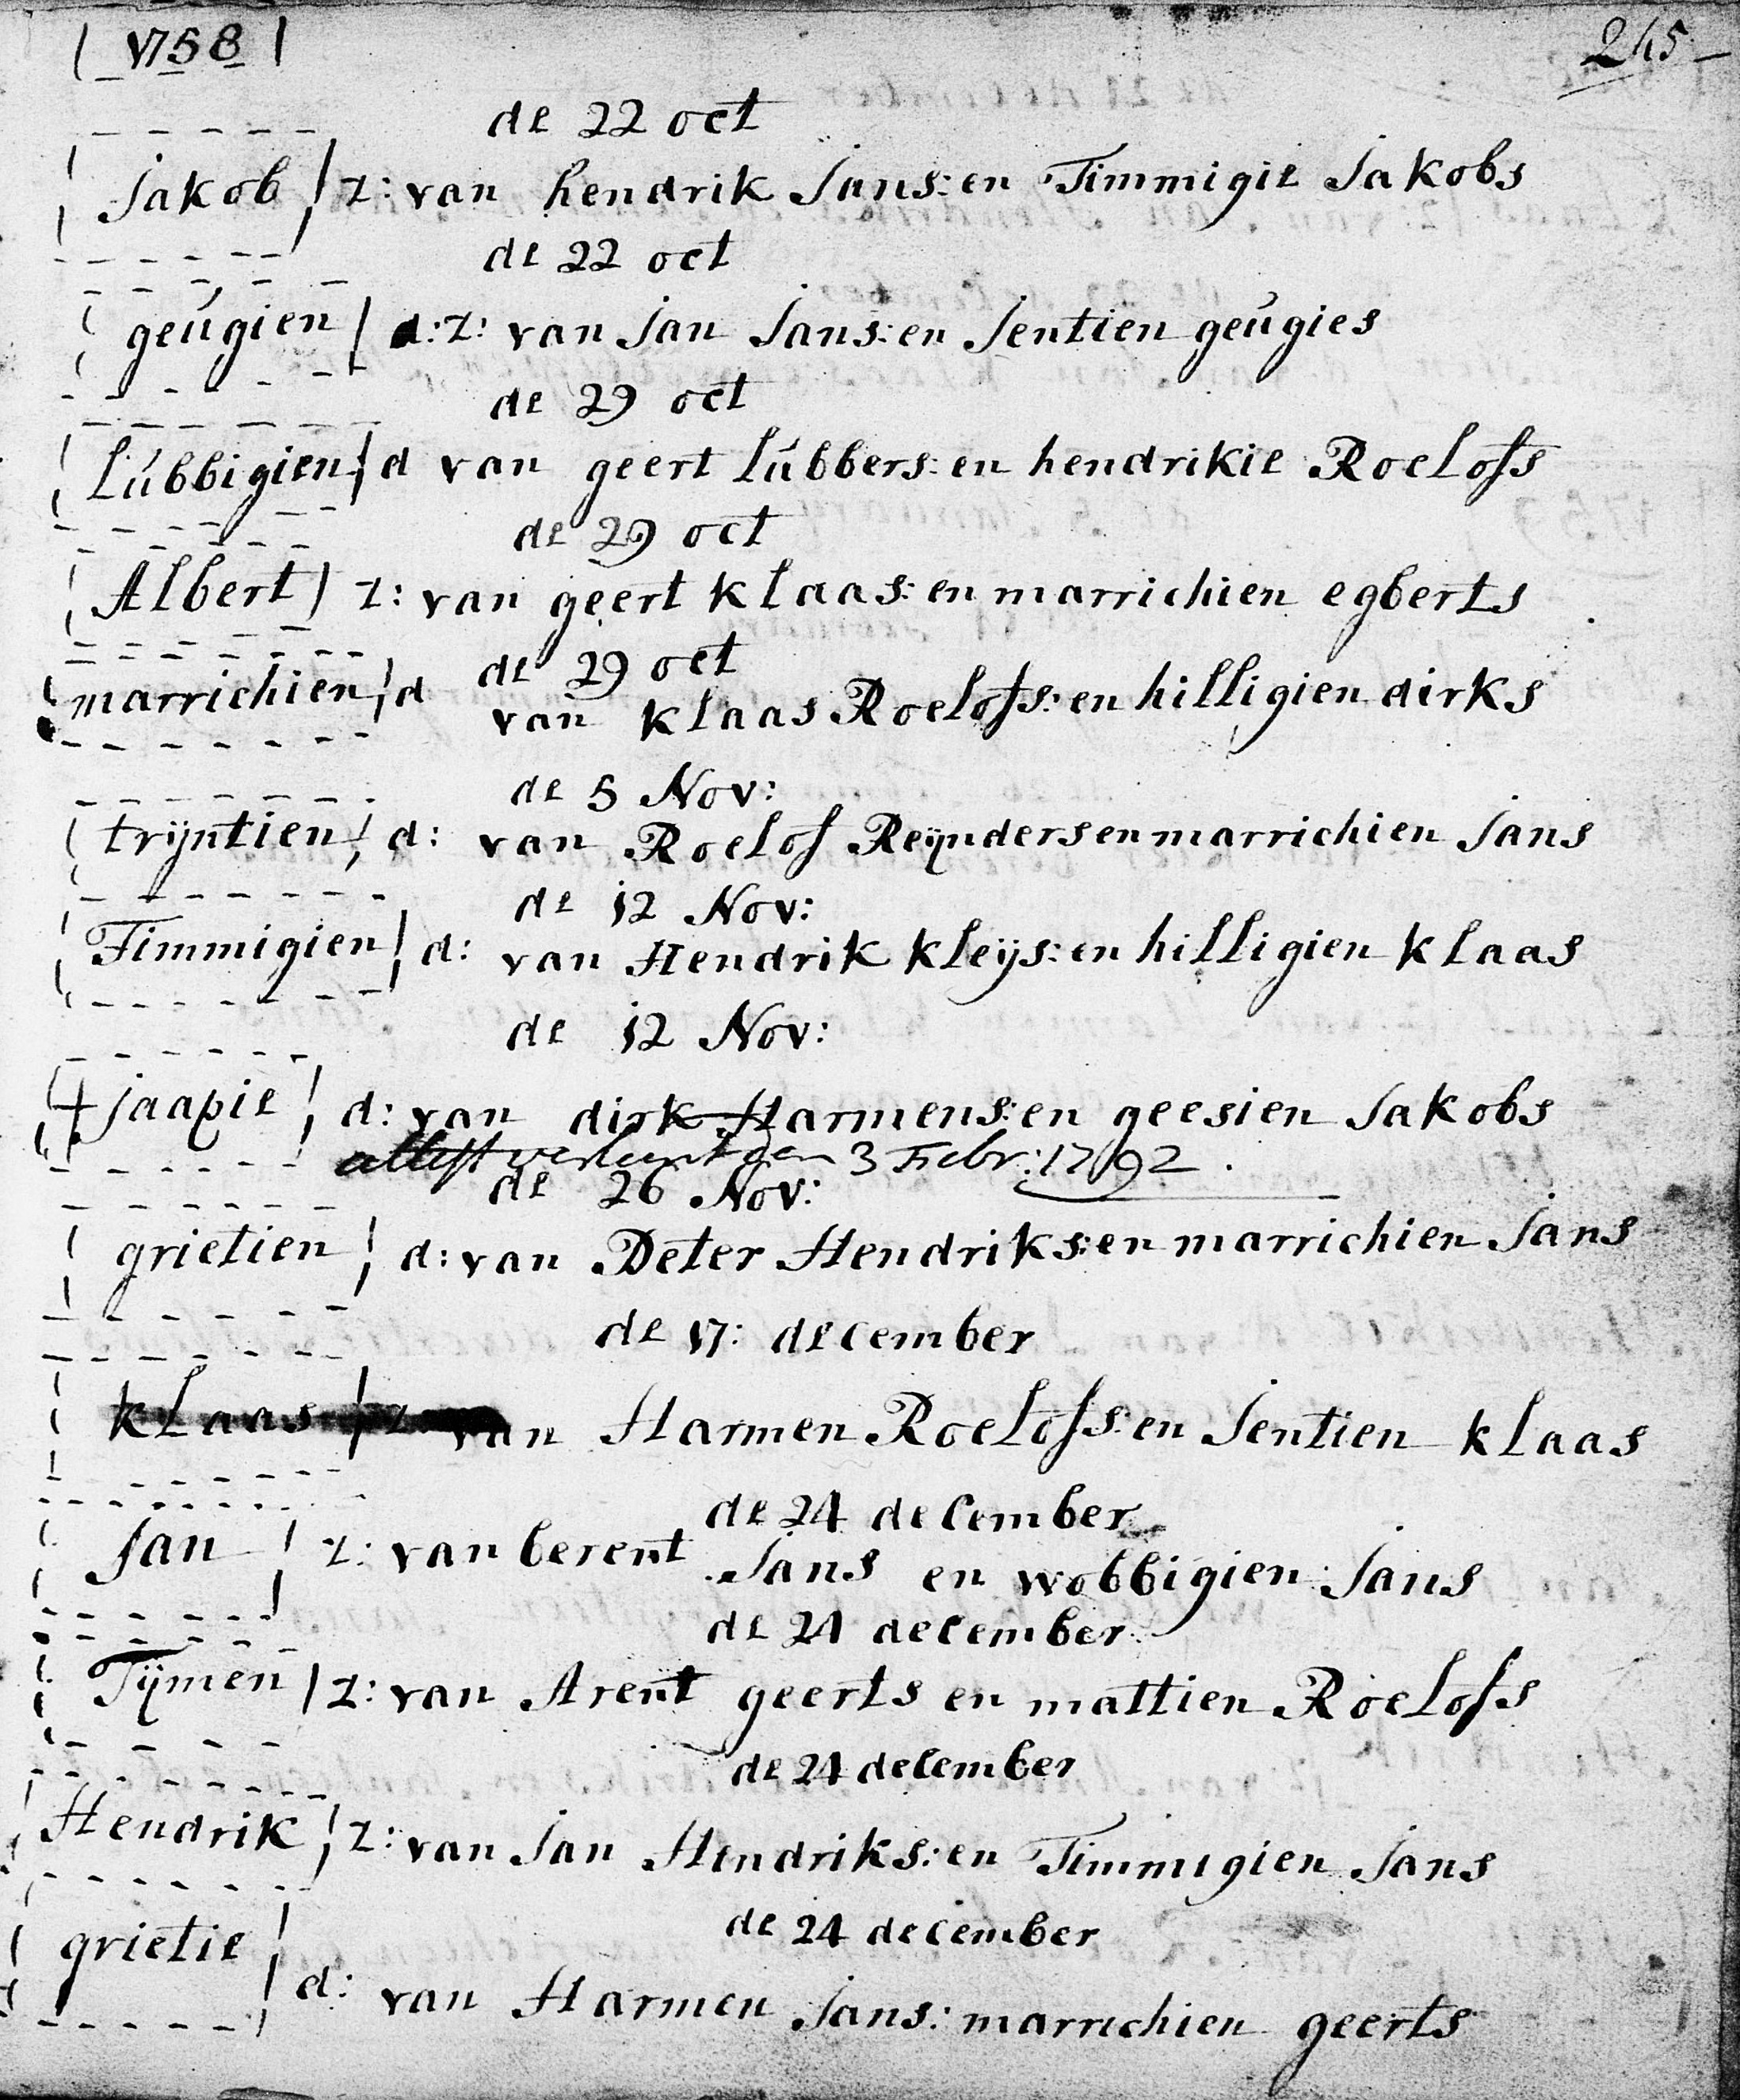 1758 245
de 22 oct
Jakob z: van hendrik Jans: en Timmigie Jakobs
de 22 oct
geúgien d: z: van Jan Jans: en Jentien geúgies
de 29 oct
lúbbigien d van geert lúbbers: en hendrikie Roelofs
de 29 oct
Albert z: van geert klaas: en marrichien egberts
de 29 oct
marrichien d van klaas Roelofs: en hilligien dirks
de 5 Nov:
trijntien d: van Roelof Reijnders en marrichien Jans
de 12 Nov:
Timmigien d: van Hendrik kleijs: en hilligien klaas
de 12 Nov:
jaapie d: van dirk Harmens: en geesien Jakobs
attest verleent den 3 Febr: 1792.
de 26 Nov:
grietien d: van Peter Hendriks: en marrichien Jans
de 17: december
klaas z van Harmen Roelofs: en Jentien klaas
de 24 december
Jan z: van berent Jans en wobbigien Jans
de 24 december
Tijmen z: van Arent geerts en mattien Roelofs
de 24 december
Hendrik z: van Jan Hendriks: en Timmigien Jans
de 24 december
grietie d: van Harmen Jans: marrichien geerts